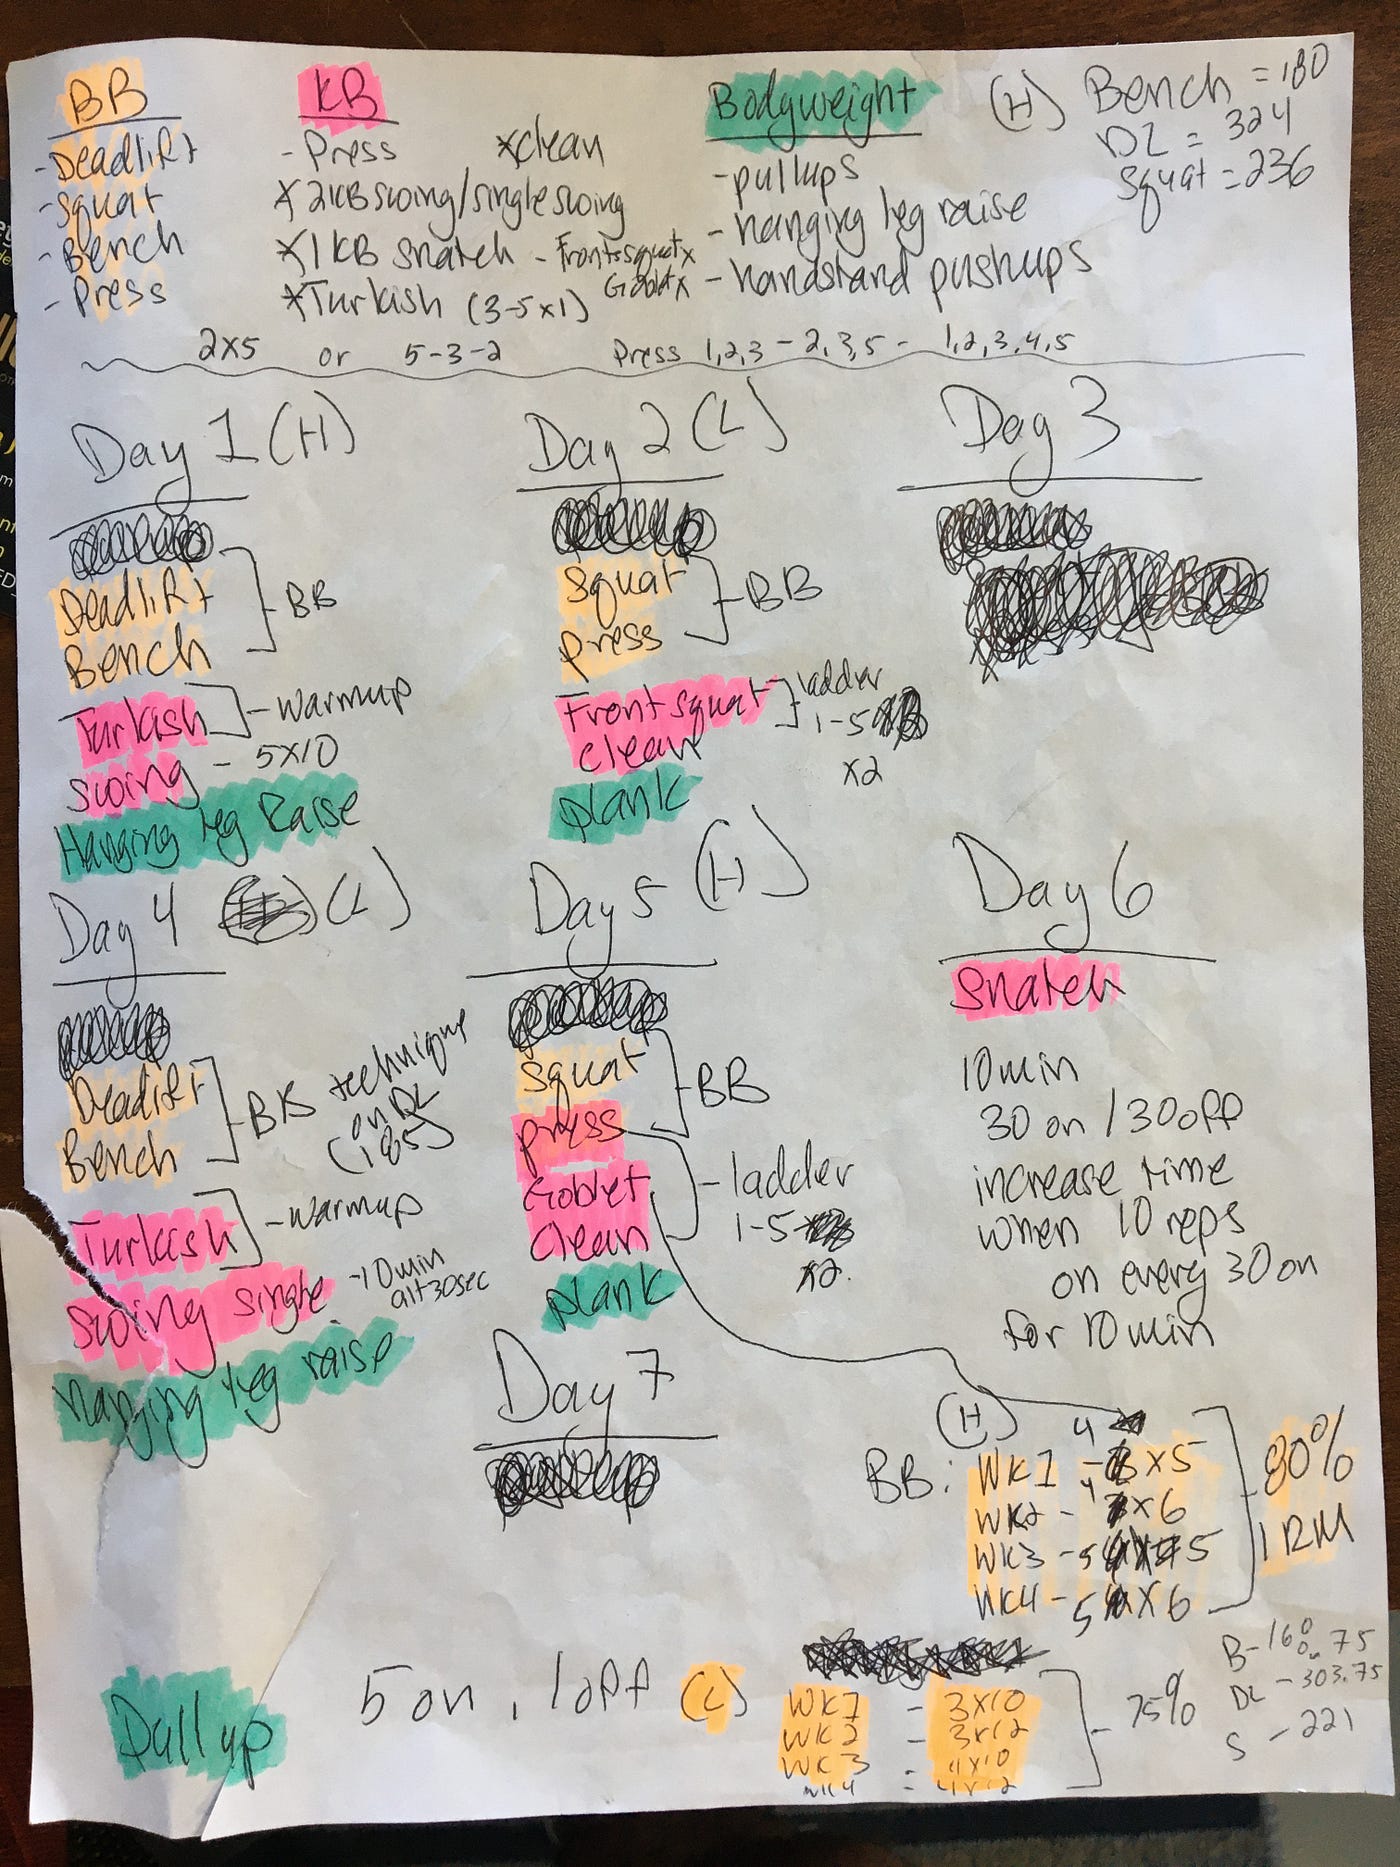 BB
-Deadlift
-Squat
-Bench
-Press
KB
-Press xclean
x2KBswing/singleswing
x1KB snatch - Frontsquatx
Gobletx
xTurkish (3-5x1)
Bodyweight
-pullups
-hanging leg raise
-handstand pushups
(H) Bench = 180
DL = 324
Squat = 236
2x5 or 5-3-2 Press 1,2,3 - 2,3,5 - 1,2,3,4,5
Day 1 (H)
Deadlift
Bench
BB
Turkish - warmup
swing - 5x10
Hanging leg Raise
Day 2 (L)
Squat
press
BB
Front squat
clean
ladder
1-5
x2
plank
Day 3
Day 4 (L)
Deadlift
Bench
BB technique
on DL
(185)
Turkish - warmup
swing single -10min
alt30sec
Hanging leg raise
Day 5 (H)
Squat
press
BB
Goblet
clean
- ladder
1-5
x2
plank
Day 6
Snatch
10min
30 on / 30off
increase time
when 10 reps
on every 30 on
for 10min
Day 7
(H)
BB: WK1 - 4 x5
WK2 - 4 x6
WK3 - 5 x5
WK4 - 5 x6
80%
1RM
Pullup
5 on, 1off
(L)
WK1 - 3x10
WK2 - 3x12
WK3 = 4x10
WK4 = 4x12
75%
DL - 303.75
S - 221